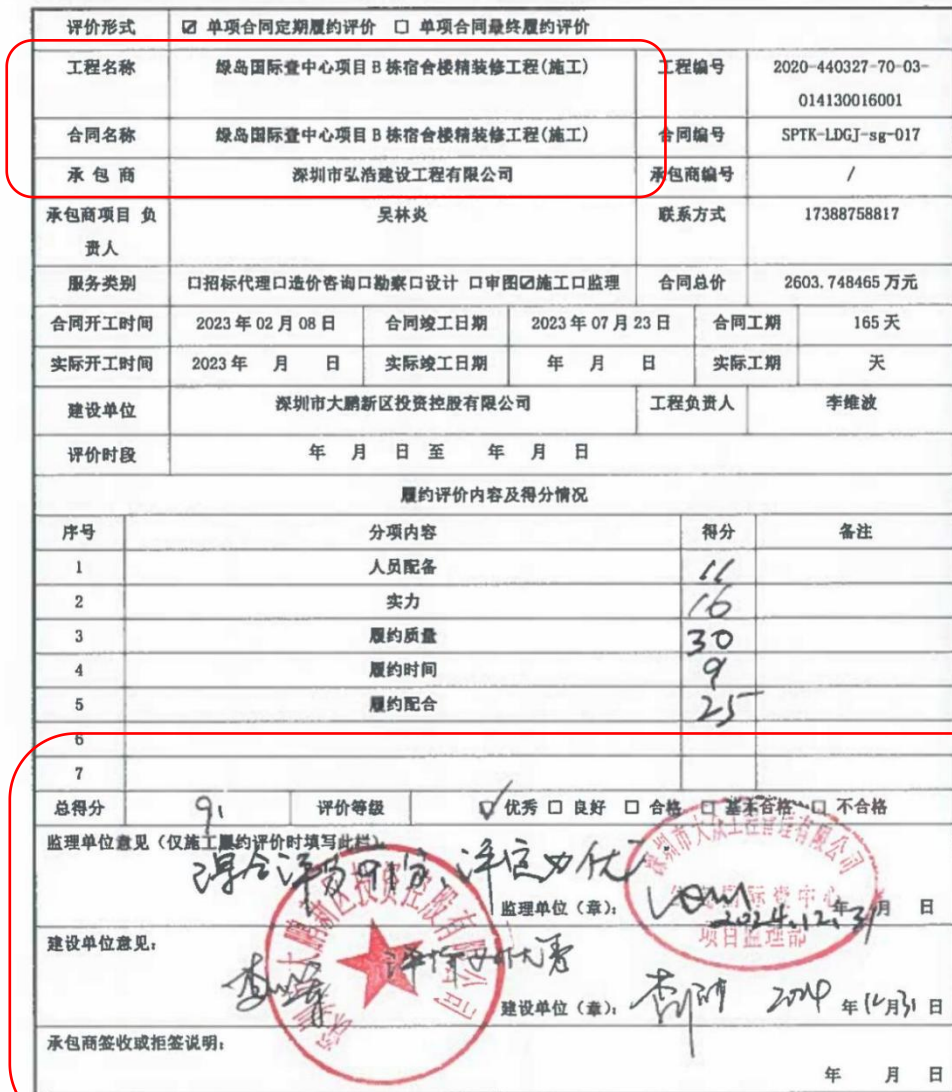 评价形式 ☑ 单项合同定期履约评价 □ 单项合同最终履约评价
工程名称 绿岛国际壹中心项目 B 栋宿舍楼精装修工程(施工) 工程编号 2020-440327-70-03-
014130016001
合同名称 绿岛国际壹中心项目 B 栋宿舍楼精装修工程(施工) 合同编号 SPTK-LDGJ-sg-017
承 包 商 深圳市弘浩建设工程有限公司 承包商编号 /
承包商项目 负 吴林炎 联系方式 17388758817
责人
服务类别 □招标代理□造价咨询□勘察□设计 □审图☑施工□监理 合同总价 2603.748465 万元
合同开工时间 2023 年 02 月 08 日 合同竣工日期 2023 年 07 月 23 日 合同工期 165 天
实际开工时间 2023 年 月 日 实际竣工日期 年 月 日 实际工期 天
建设单位 深圳市大鹏新区投资控股有限公司 工程负责人 李维波
评价时段 年 月 日 至 年 月 日
履约评价内容及得分情况
序号 分项内容 得分 备注
1 人员配备 11
2 实力 16
3 履约质量 30
4 履约时间 9
5 履约配合 25
6
7
总得分 91 评价等级 ☑ 优秀 □ 良好 □ 合格 □ 基本合格 □ 不合格
监理单位意见（仅施工履约评价时填写此栏）
综合评分91分，评定为优
深圳市大众工程管理有限公司
国际壹中心
项目监理部
监理单位（章）： 2024.12.31 年 月 日
建设单位意见：
深圳市大鹏新区投资控股有限公司
建设单位（章）： 2024 年 12 月 31 日
承包商签收或拒签说明：
年 月 日